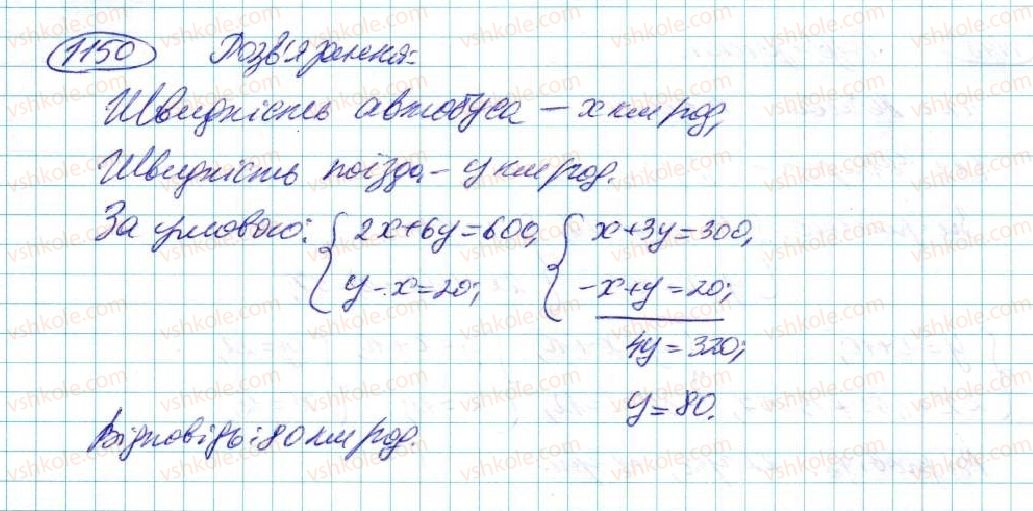 1150 Розв'язання:
Швидкість автобуса – x км/год,
Швидкість поїзда – y км/год.
За умовою: { 2x+6y=600, { x+3y=300,
y-x=20; -x+y=20;
4y=320;
y=80.
Відповідь: 80 км/год.
vshkole.com